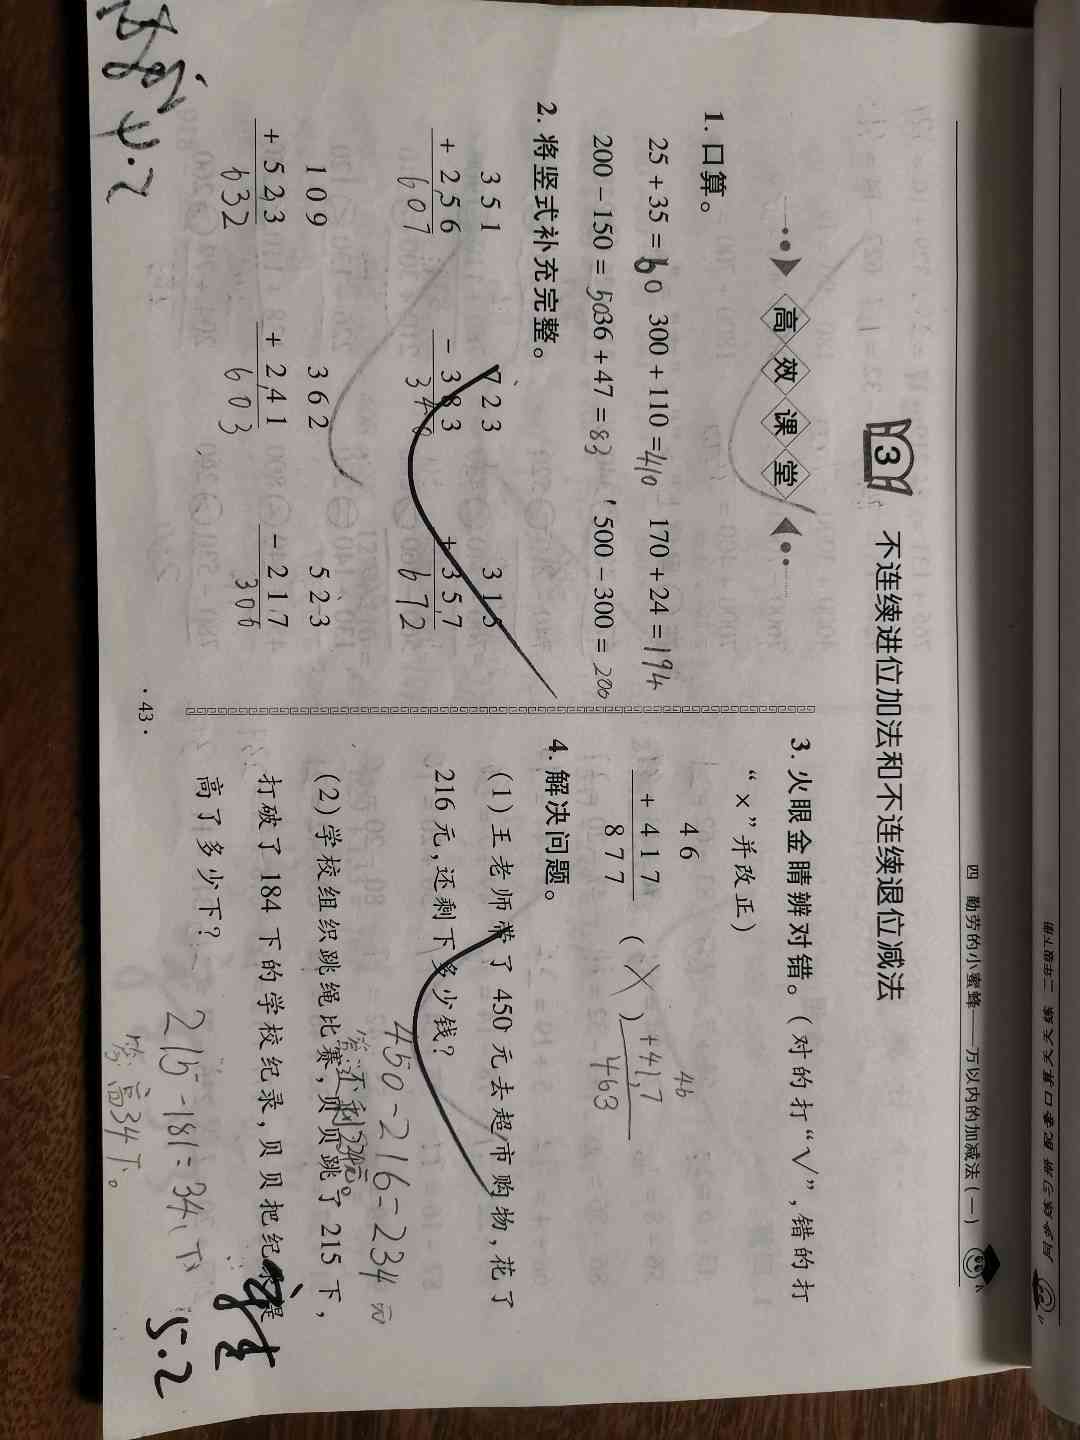 四 勤劳的小蜜蜂——万以内的加减法(一)
3 不连续进位加法和不连续退位减法
高效课堂
1. 口算。
25+35=60 300+110=410 170+24=194
200-150=50 36+47=83 500-300=200
2. 将竖式补充完整。
351 723 315
+256 -383 +357
607 340 672
109 362 523
+523 +241 -217
632 603 306
3. 火眼金睛辨对错。(对的打“√”,错的打
“×”并改正)
46
+417
877
(X)
46
+417
463
4. 解决问题。
(1)王老师带了450元去超市购物,花了
216元,还剩下多少钱?
450-216=234元
答:还剩234元。
(2)学校组织跳绳比赛,贝贝跳了215下,
打破了184下的学校纪录,贝贝把纪录提
高了多少下?
215-181=34(下)
答:高34下。
5.2
4.2
·43·